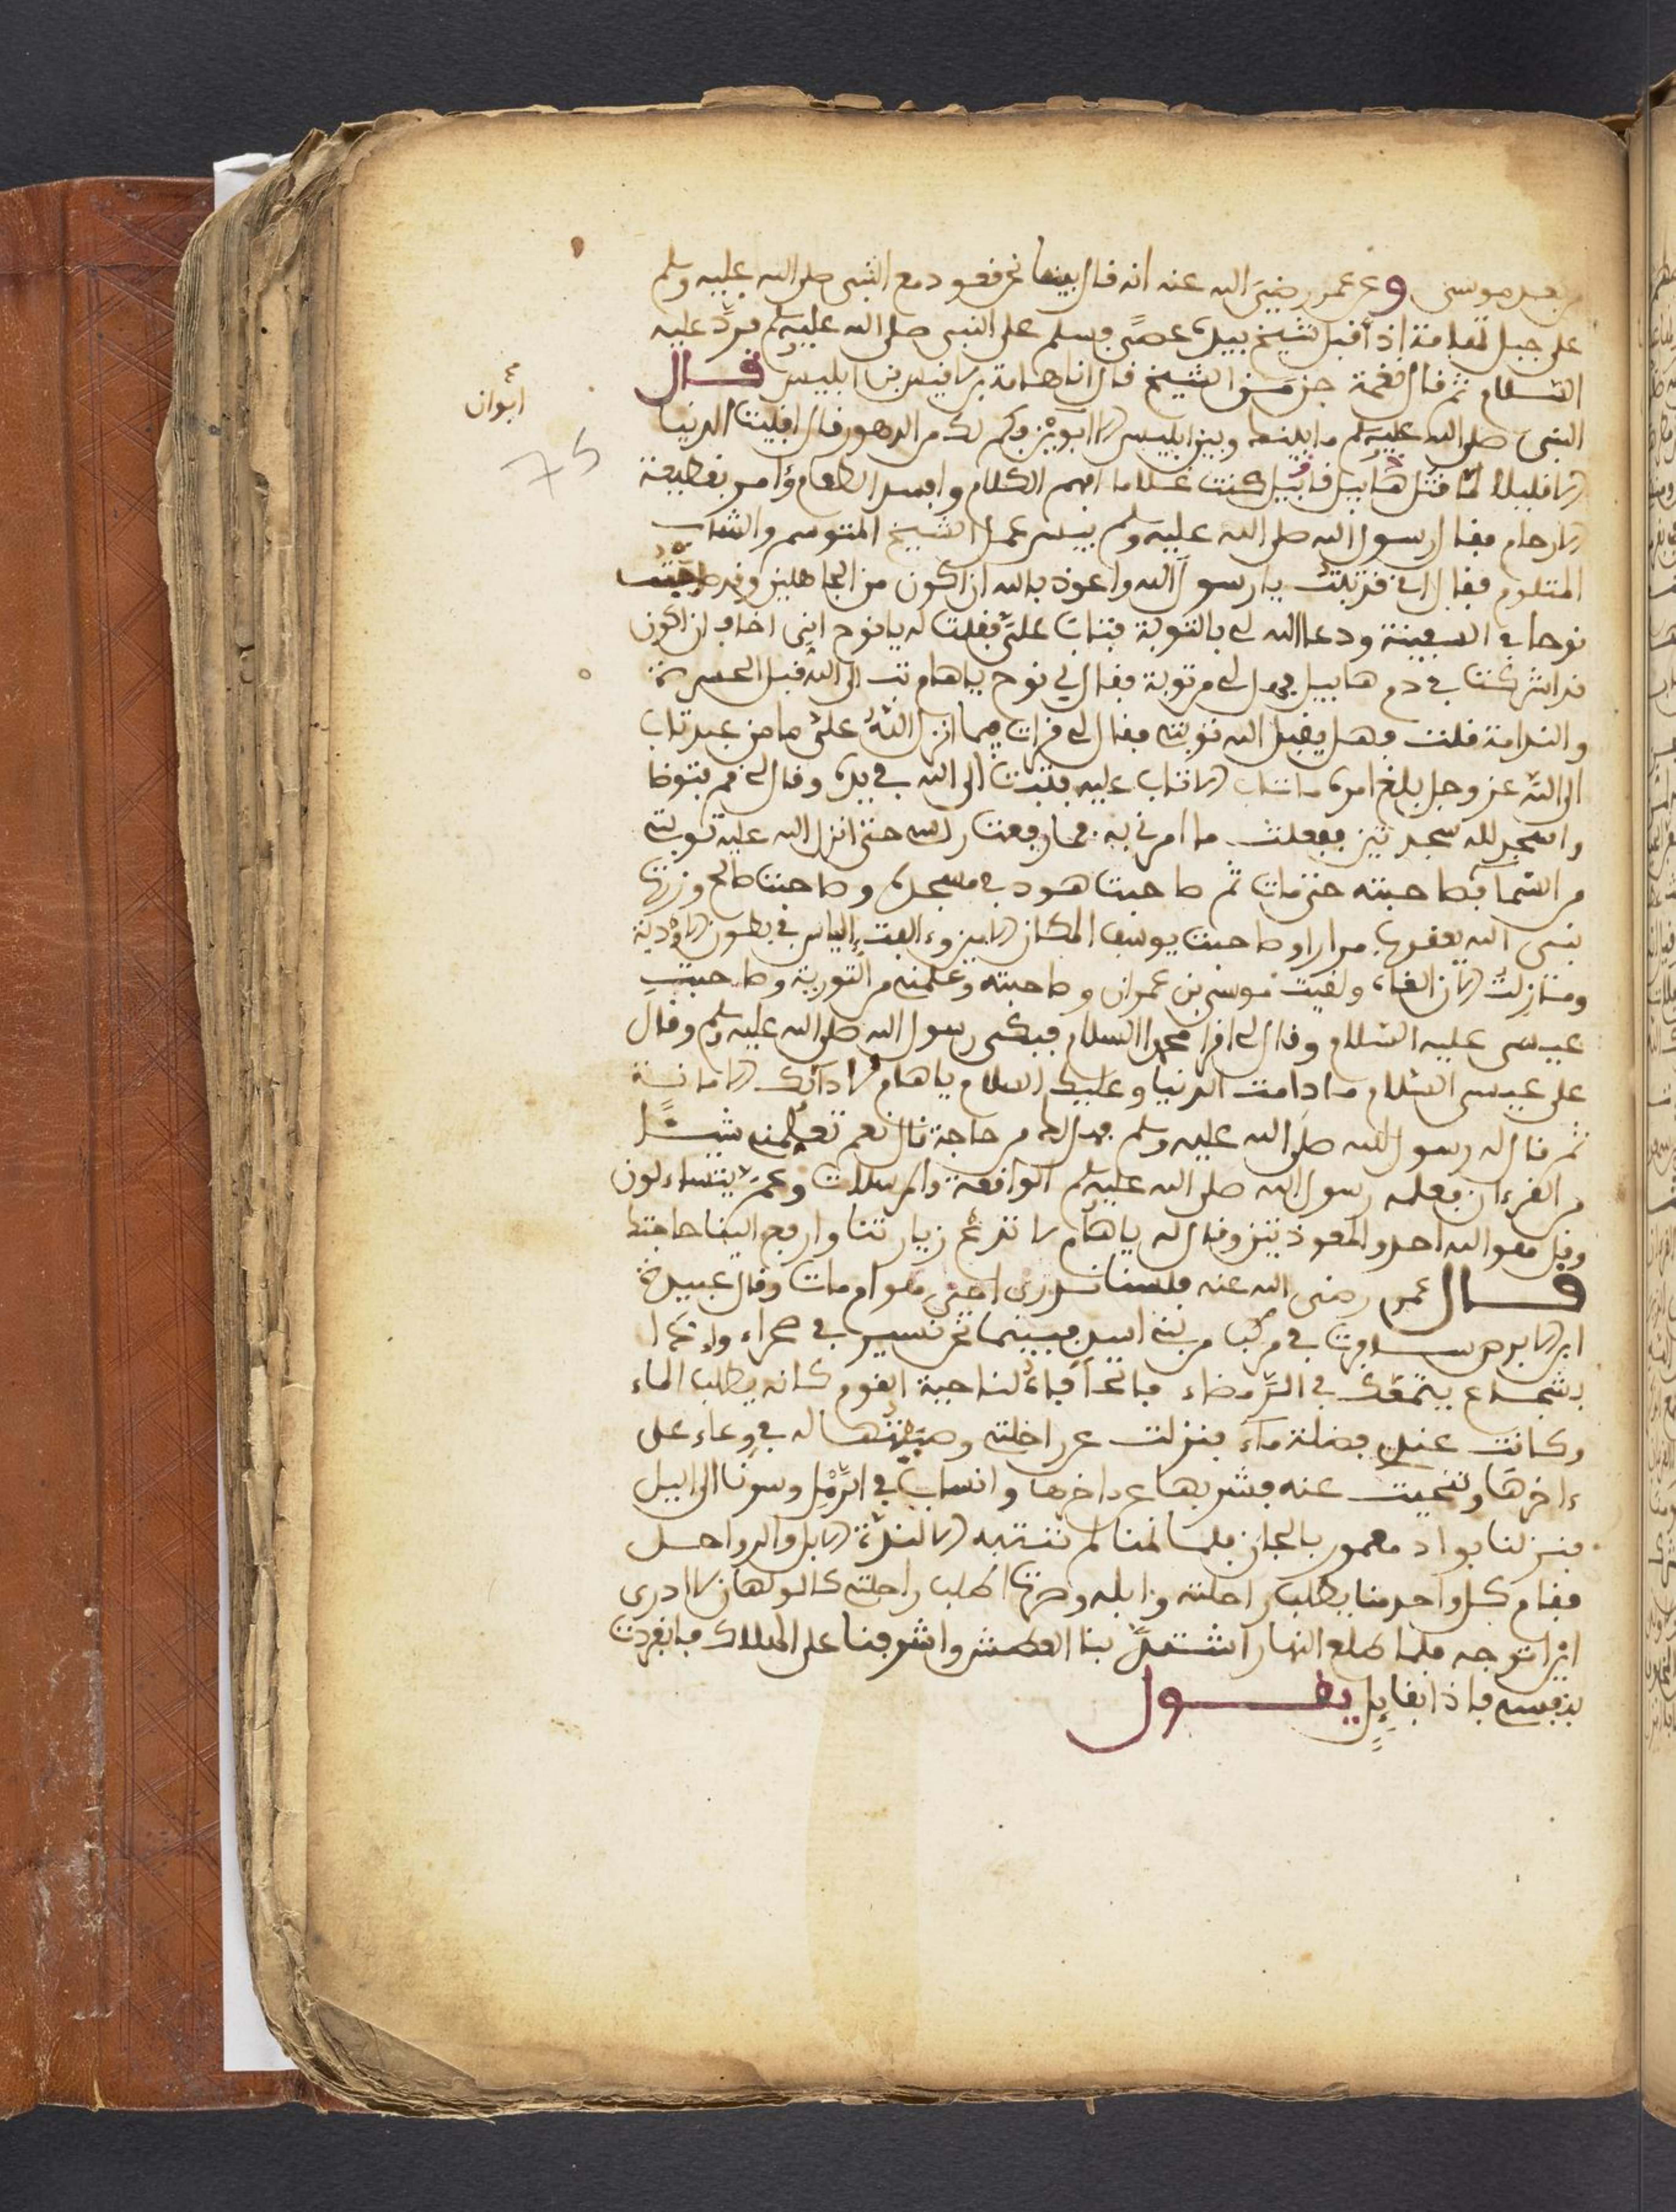 من بعد موسى وعن عمر رضي الله عنه انه قال بينما نحن قعود مع النبي صلى الله عليه وسلم
على جبل تهامة اذ أقبل شيخ بيده عصى فسلم على النبي صلى الله عليه وسلم فرد عليه
السلام ثم قال نغمة جن من الشيخ قال انا هامة بن لاقيس بن ابليس قال
النبي صلى الله عليه وسلم ما بينك وبين ابليس الا ابوين فكم لك من الدهور قال افنيت الدنيا
الا قليلا لما قتل هابيل قابيل كنت غلاما افهم الكلام وافسد الطعام وءامر بقطيعة
الارحام فقال رسول الله صلى الله عليه وسلم بيس عمل الشيخ المتوسم والشاب
المتلوم فقال اني قد تبت يا رسول الله واعوذ بالله ان اكون من الجاهلين وقد صاحبت
نوحا في السفينة ودعا الله لي بالتوبة فتاب علي فقلت له يا نوح اني اخاف ان اكون
قد اشركت في دم هابيل فهل لي من توبة فقال لي نوح يا هام تب الى الله قبل الحسرة
والندامة قلت وهل يقبل الله توبتي فقال لي قرات فيما انزل الله علي ما من عبد تاب
الى الله عز وجل بلغ امره ما تاب الا تاب عليه فتبت الى الله في يده وقال لي قم فتوضا
واسجد لله سجدتين ففعلت ما امرني به فما رفعت راسي حتى انزل الله عليه توبتي
من السما فصاحبته حتى مات ثم صاحبت هود في مسجده وصاحبت صالح وزرت
نبي الله يعقوب مرارا وصاحبت يوسف المكان الامين والفت إلياس في بطون الاودية
ومنازلت الان القاه ولقيت موسى بن عمران وصاحبته وعلمني من التورية وصاحبت
عيسى عليه السلام وقال لي اقرا محمدا السلام فبكى رسول الله صلى الله عليه وسلم وقال
على عيسى السلام ما دامت الدنيا وعليك السلام يا هام لادائك الامانة
ثم قال له رسول الله صلى الله عليه وسلم هل لك من حاجة قال نعم تعلمني شيئا
من القرءان فعلمه رسول الله صلى الله عليه وسلم الواقعة والمرسلات وعم يتساءلون
وقل هو الله احد والمعوذتين وقال له يا هام لا تدع زيارتنا وارفع الينا حاجتك
قال عمر رضي الله عنه فلسنا ندري احي هو ام مات وقال عبيد
ابن الابرص سافرت في ركب من بني اسد فبينما نحن نسير في صحراء واذا
بشجاع يتمعك في الرمضاء فاتحا فاه لناحية القوم كانه يطلب الماء
وكانت عندي فضلة ماء فنزلت عن راحلتي وصببتها له في وعاء على
ءاخرها وتنحيت عنه فشربها عن ءاخرها وانساب في الرمل وسرنا الى اليل
فنزلنا بواد معمور بالجان فلما نمنا لم ننتبه الا لندة الابل والرواحل
فقام كل واحد منا يطلب راحلته وابله وصرت اطلب راحلتي كالولهان لا ادري
اين اتوجه فلما طلع النهار اشتد بنا العطش واشرفنا على الهلاك فانفردت
بنفسي فاذا بقايل يقول
ابوان
75